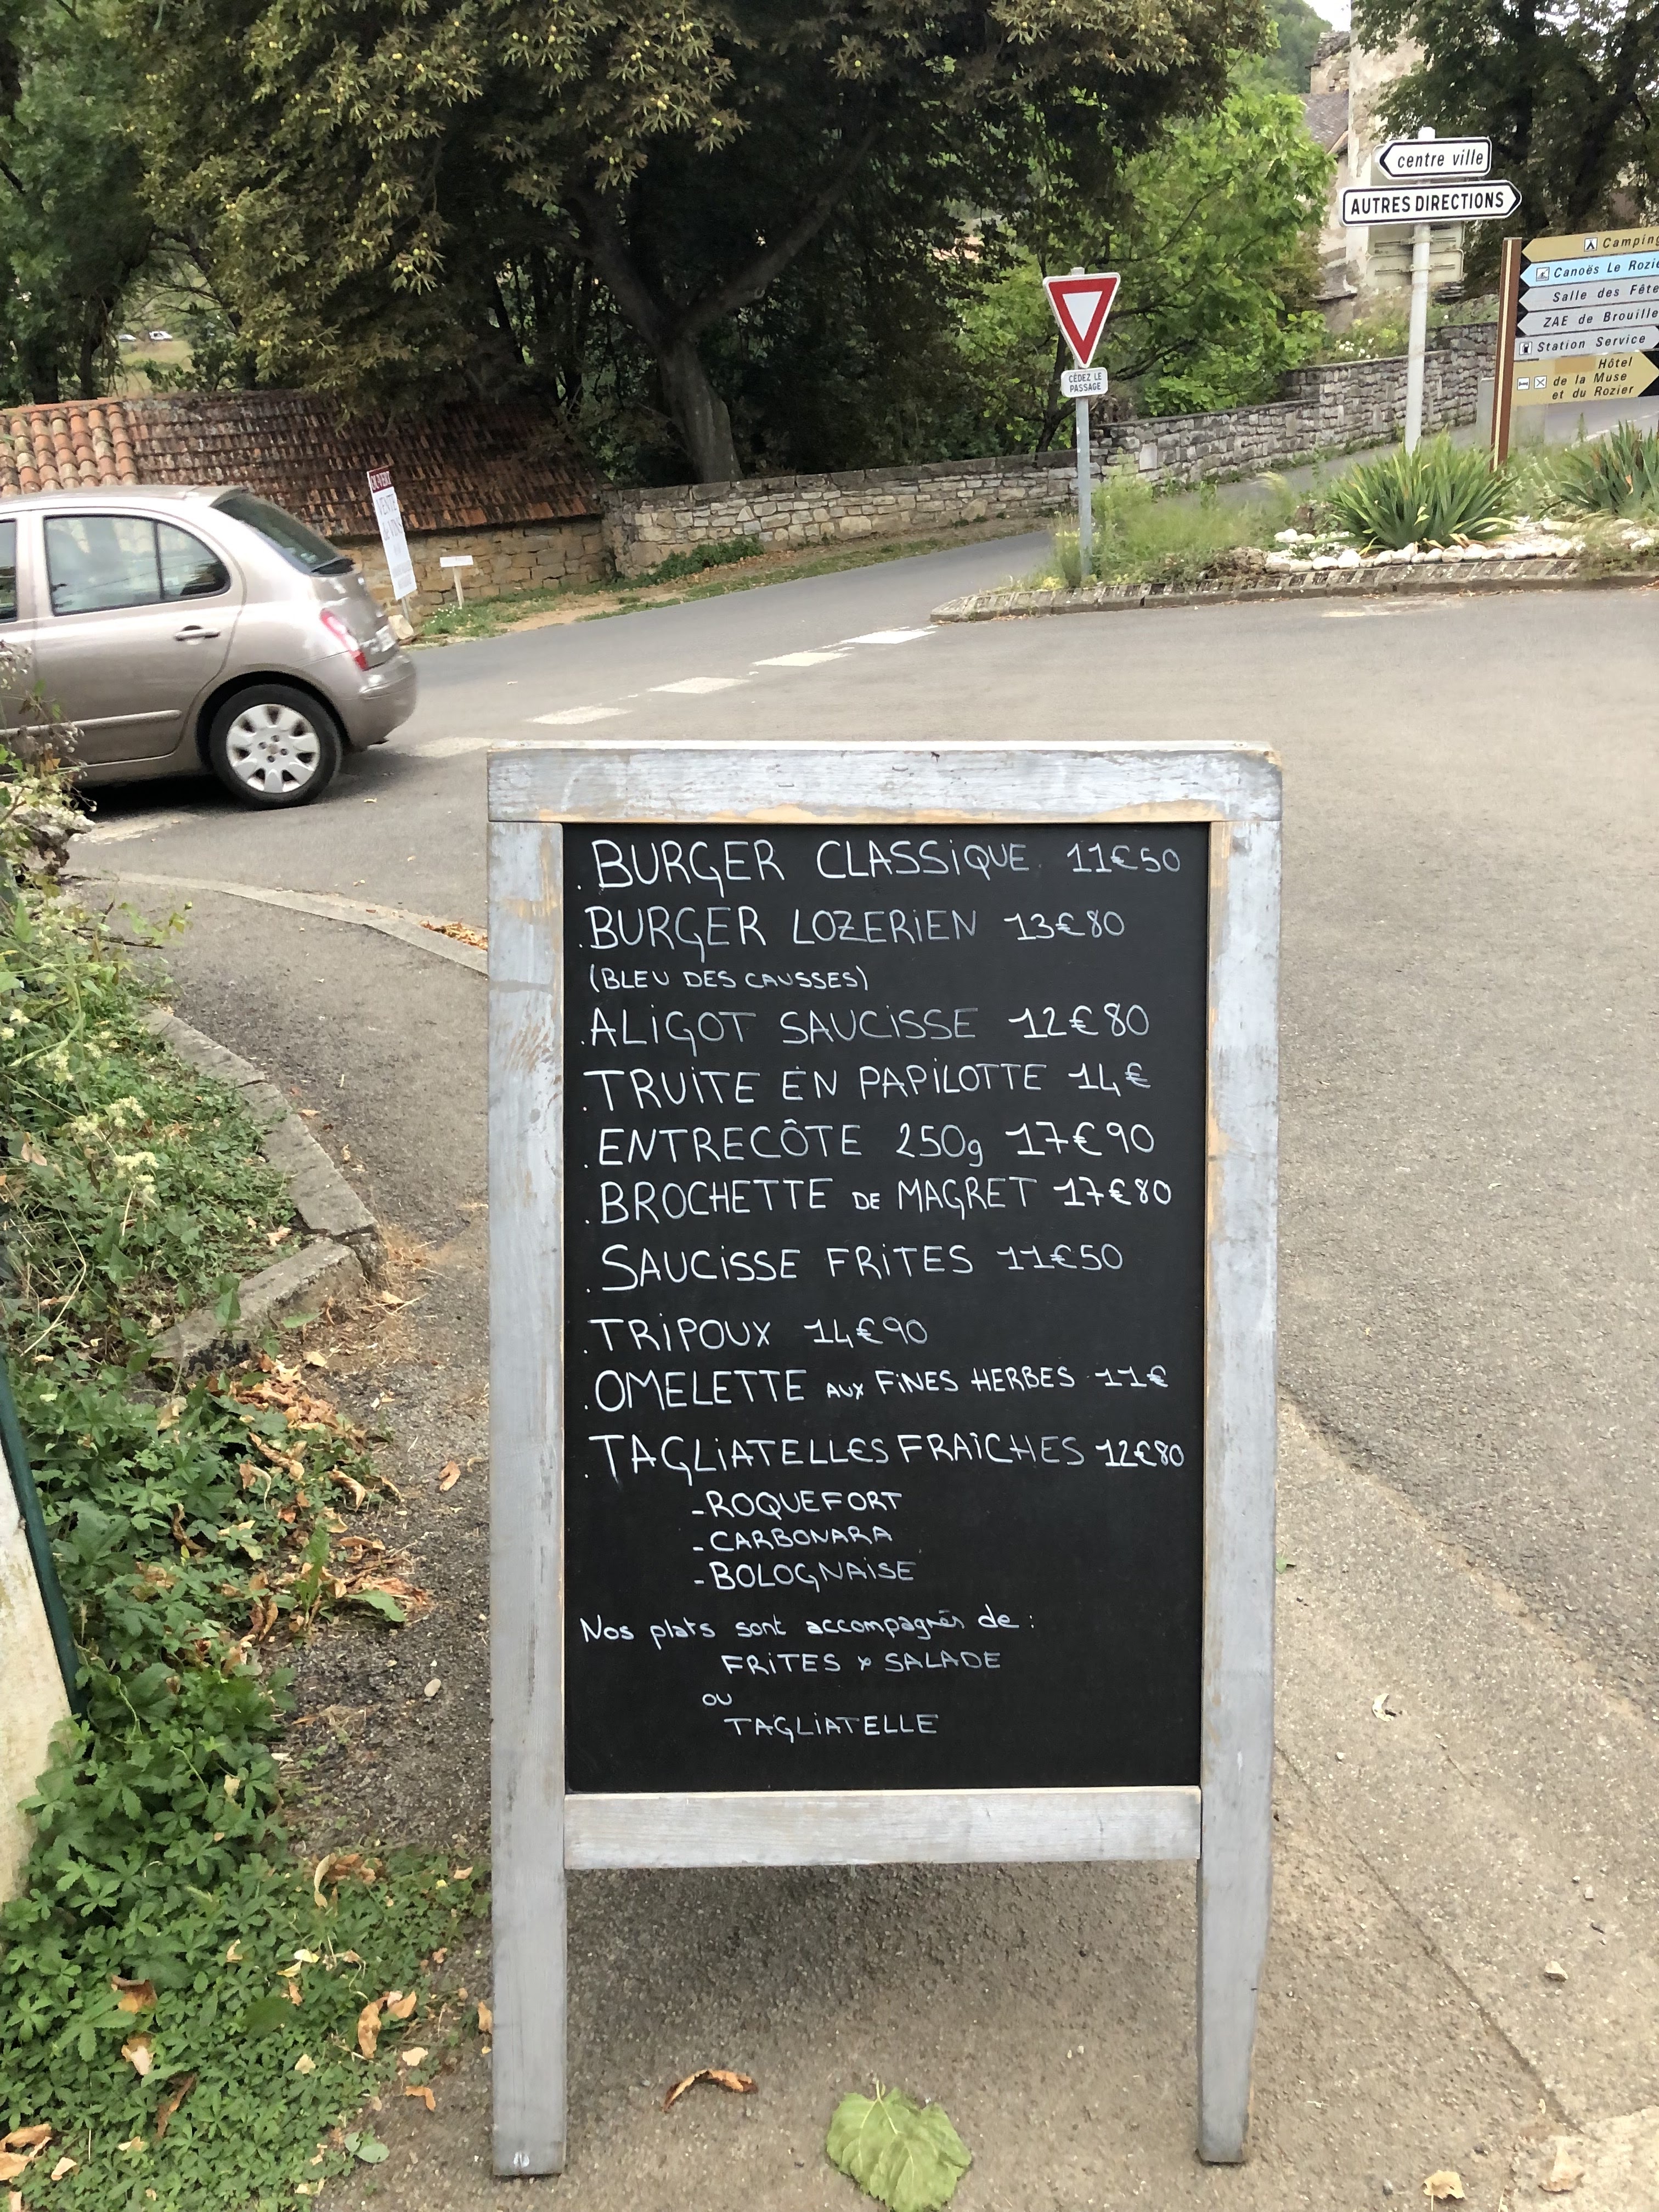 centre ville
AUTRES DIRECTIONS
Camping
Canoës Le Rozie
Salle des Fête
ZAE de Brouille
Station Service
Hôtel
de la Muse
et du Rozier
CÉDEZ LE
PASSAGE
OUVERT
VENTE
. BURGER CLASSIQUE 11€50
. BURGER LOZERIEN 13€80
(BLEU DES CAUSSES)
. ALIGOT SAUCISSE 12€80
. TRUITE EN PAPILOTTE 14€
. ENTRECÔTE 250g 17€90
. BROCHETTE DE MAGRET 17€80
. SAUCISSE FRITES 11€50
. TRIPOUX 14€90
. OMELETTE AUX FINES HERBES 11€
. TAGLIATELLES FRAÎCHES 12€80
- ROQUEFORT
- CARBONARA
- BOLOGNAISE
Nos plats sont accompagnés de :
FRITES & SALADE
OU
TAGLIATELLE